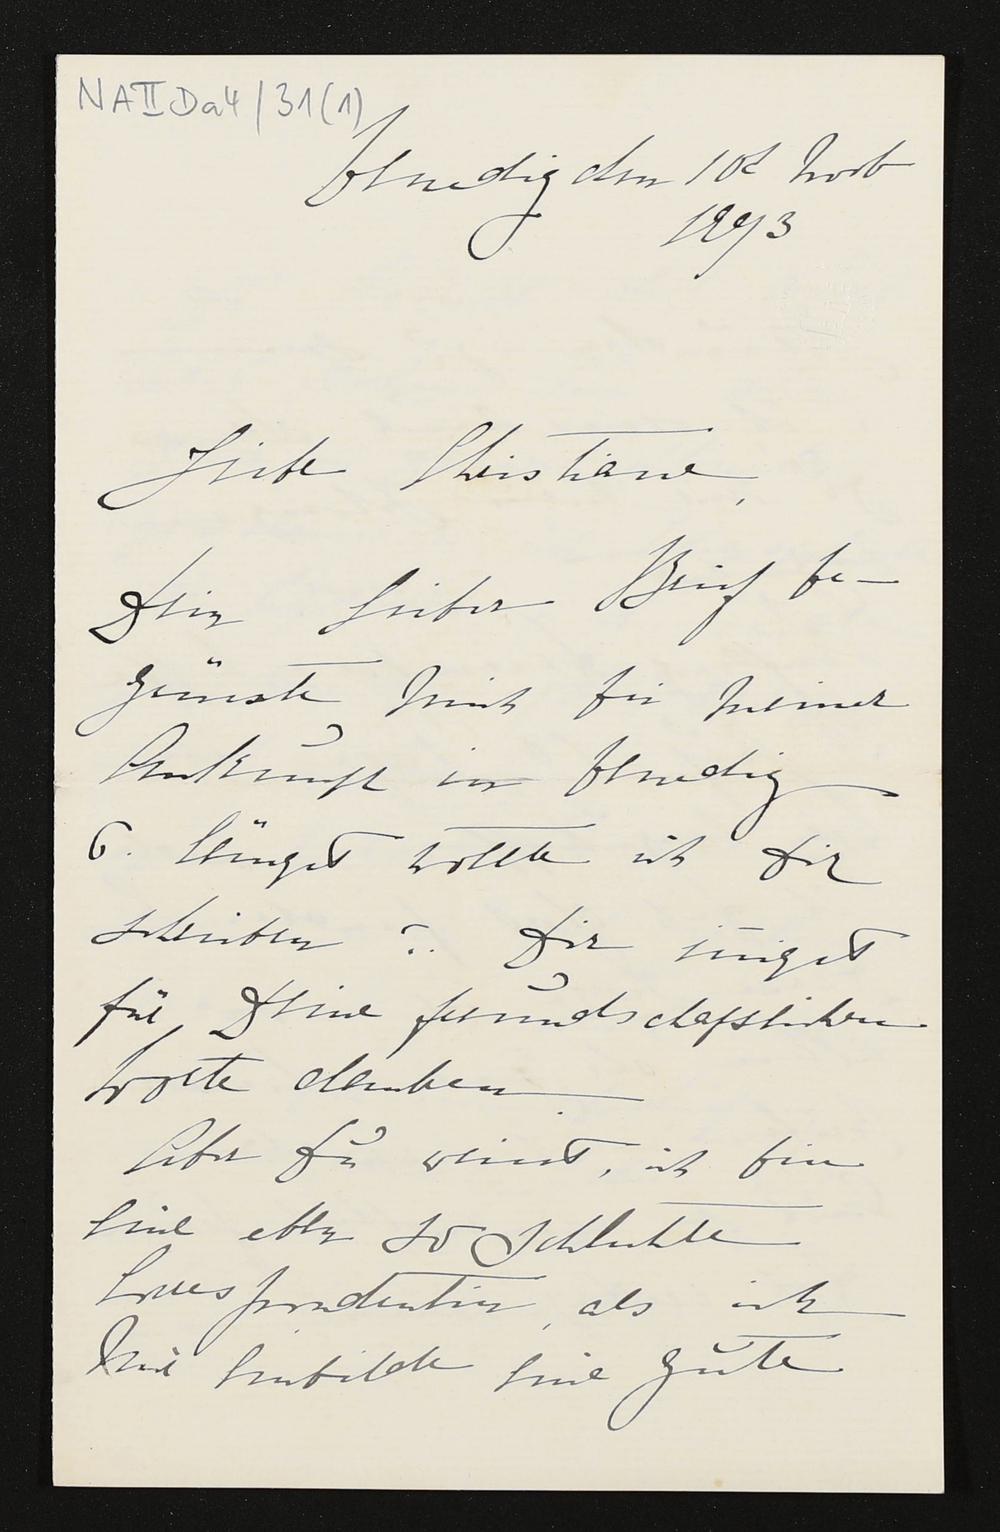 NA II Da 4/31(1)
Venedig den 10t Novb
1893
Liebe Christiane,
Dein lieber Brief be-
grüsste mich bei meiner
Ankunft in Venedig
längst wollte ich Dir
schreiben Dir innigst
für Deine freundschaftlichen
Worte danken
Aber Du weisst, ich bin
eine eben so schlechte
Correspondentin, als ich
mir einbilde eine gute